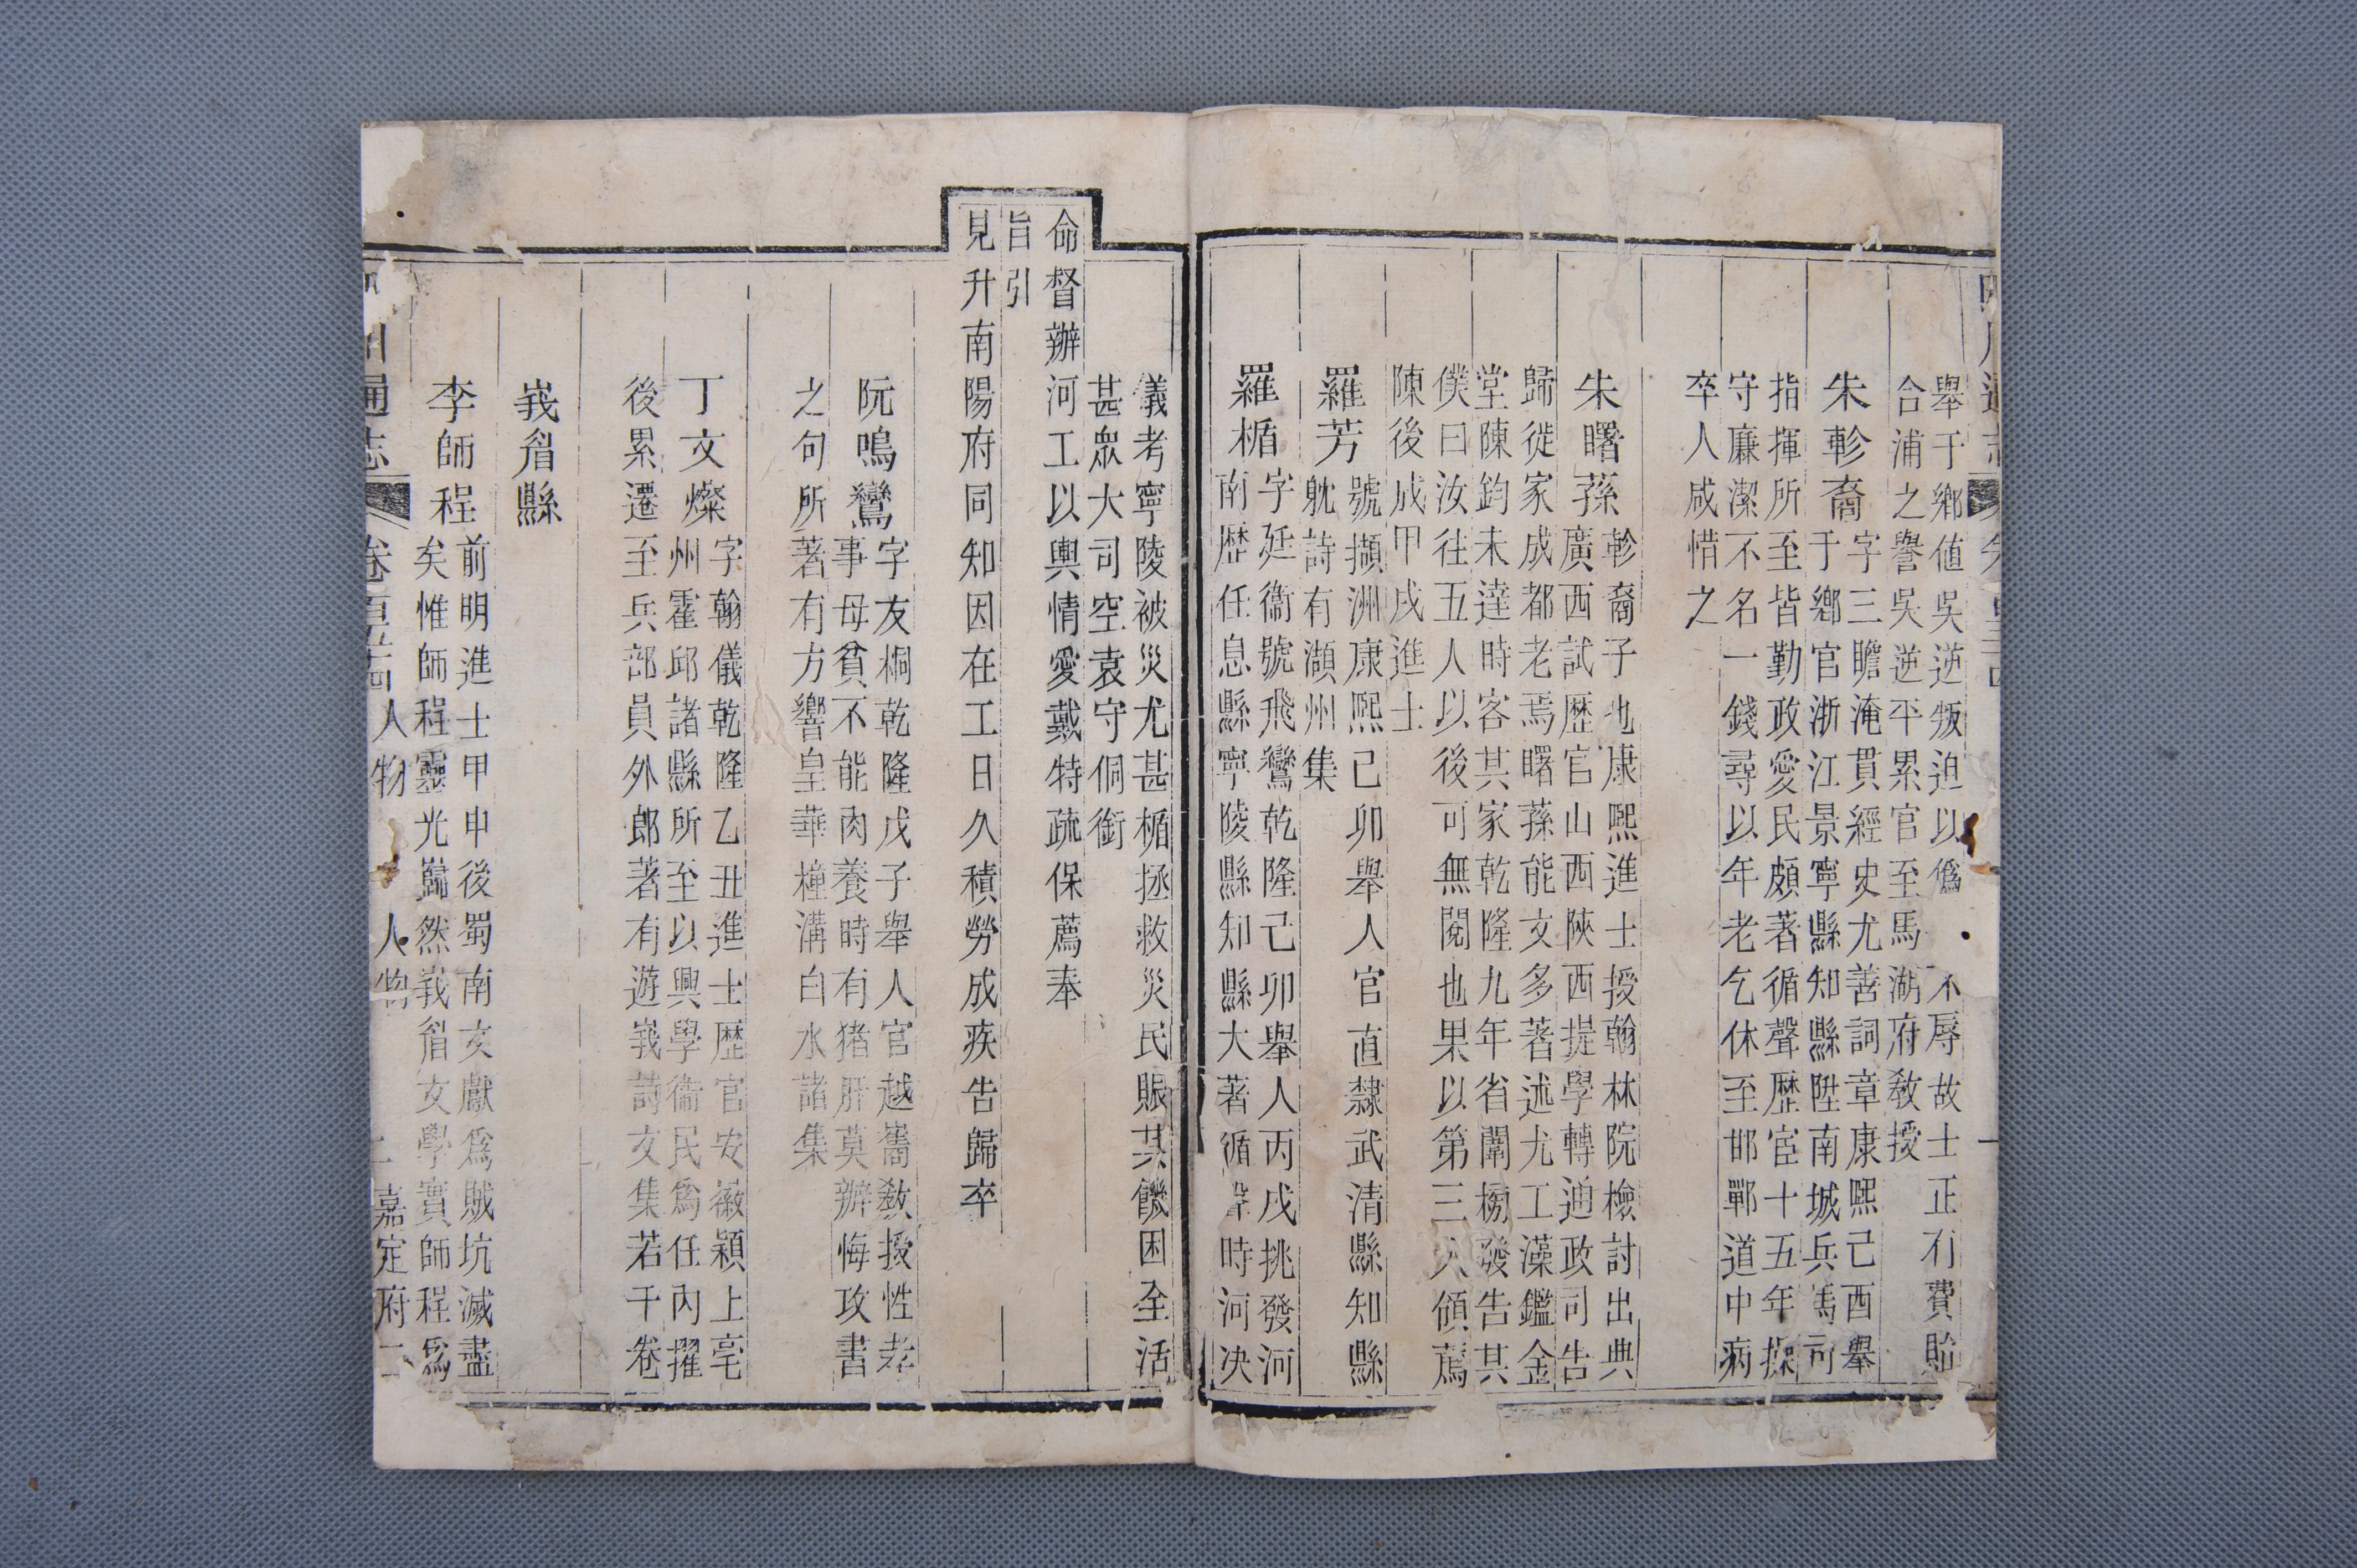 舉于鄉值吳逆叛迫以僞不辱故士正有費貽
合浦之譽吳逆平累官至馬湖府教授
朱軫裔
字三瞻淹貫經史尤善詞章康熙己酉舉
于鄉官浙江景寧縣知縣陞南城兵馬司
指揮所至皆勤政愛民頗著循聲歷宦十五年操
守廉潔不名一錢尋以年老乞休至邯鄲道中病
卒人咸惜之
朱曙蓀
軫裔子也康熙進士授翰林院檢討出典
廣西試歷官山西陝西提學轉通政司告
歸徙家成都老焉曙蓀能文多著述尤工藻鑑金
堂陳鈞未達時客其家乾隆九年省闈榜發告其
僕曰汝往五人以後可無閱也果以第三人領薦
陳後成甲戌進士
羅芳
號擷洲康熙己卯舉人官直隸武清縣知縣
躭詩有瀕州集
羅楯
字延衞號飛鸞乾隆己卯舉人丙戌挑發河
南歷任息縣寧陵縣知縣大著循聲時河決
儀考寧陵被災尤甚楯拯救災民賑其饑困全活
甚眾大司空袁守侗銜
命督辦河工以輿情愛戴特疏保薦奉
旨引
見升南陽府同知因在工日久積勞成疾告歸卒
阮鳴鸞
字友桐乾隆戊子舉人官越巂教授性孝
事母貧不能肉養時有猪肝莫辦悔攻書
之句所著有方響皇華橦溝白水諸集
丁文燦
字翰儀乾隆乙丑進士歷官安徽潁上亳
州霍邱諸縣所至以興學衞民爲任內擢
後累遷至兵部員外郎著有遊峩詩文集若干卷
峩眉縣
李師程
前明進士甲申後蜀南文獻爲賊坑滅盡
矣惟師程靈光巋然峩眉文學實師程爲
川通志
卷
人物
人物
二
嘉定府二